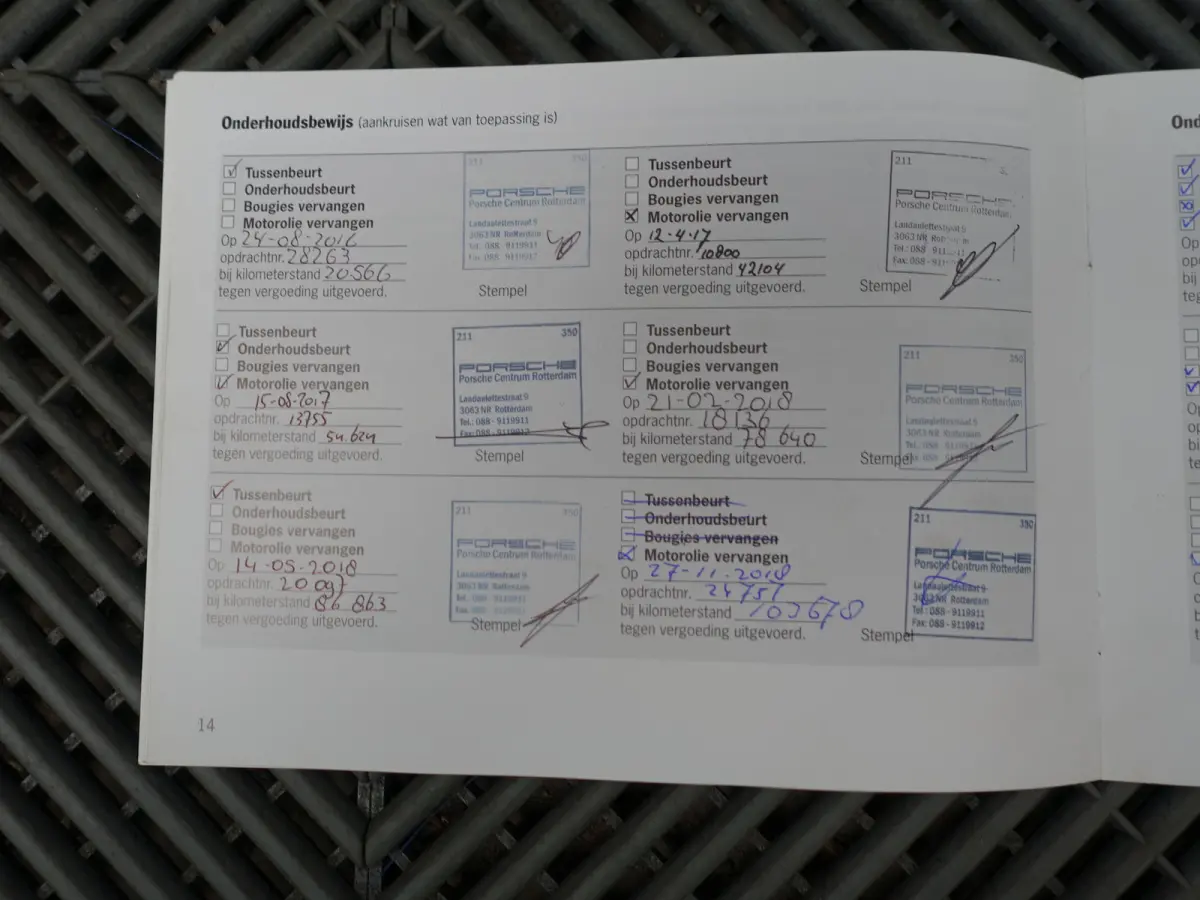 Onderhoudsbewijs (aankruisen wat van toepassing is)
Tussenbeurt
Onderhoudsbeurt
Bougies vervangen
Motorolie vervangen
Op 24-08-2016
opdrachtnr. 28263
bij kilometerstand 20566
tegen vergoeding uitgevoerd.
211 350
PORSCHE
Porsche Centrum Rotterdam
Landaulettestraat 9
3063 NR Rotterdam
Tel. 088 - 9119911
Fax: 088 - 9119912
Stempel
Tussenbeurt
Onderhoudsbeurt
Bougies vervangen
Motorolie vervangen
Op 12-4-17
opdrachtnr. 10800
bij kilometerstand 42104
tegen vergoeding uitgevoerd.
211
PORSCHE
Porsche Centrum Rotterdam
Landaulettestraat 9
3063 NR
Tel.: 088 - 911
Fax: 088 - 911
Stempel
Tussenbeurt
Onderhoudsbeurt
Bougies vervangen
Motorolie vervangen
Op 15-08-2017
opdrachtnr. 13755
bij kilometerstand 54.624
tegen vergoeding uitgevoerd.
211 350
PORSCHE
Porsche Centrum Rotterdam
Landaulettestraat 9
3063 NR Rotterdam
Tel.: 088 - 9119911
Fax: 088 - 9119912
Stempel
Tussenbeurt
Onderhoudsbeurt
Bougies vervangen
Motorolie vervangen
Op 21-02-2018
opdrachtnr. 18136
bij kilometerstand 78 640
tegen vergoeding uitgevoerd.
211 350
PORSCHE
Porsche Centrum Rotterdam
Landaulettestraat 9
3063 NR Rotterdam
Tel.: 088 - 9119911
Fax: 088 - 9119912
Stempel
Tussenbeurt
Onderhoudsbeurt
Bougies vervangen
Motorolie vervangen
Op 14-05-2018
opdrachtnr. 20097
bij kilometerstand 86 863
tegen vergoeding uitgevoerd.
211 350
PORSCHE
Porsche Centrum Rotterdam
Landaulettestraat 9
3063 NR Rotterdam
Tel.: 088 - 9119911
Fax: 088 - 9119912
Stempel
Tussenbeurt
Onderhoudsbeurt
Bougies vervangen
Motorolie vervangen
Op 27-11-2018
opdrachtnr. 24751
bij kilometerstand 103678
tegen vergoeding uitgevoerd.
211 350
PORSCHE
Porsche Centrum Rotterdam
Landaulettestraat 9
3063 NR Rotterdam
Tel.: 088 - 9119911
Fax: 088 - 9119912
Stempel
14
Op
Op